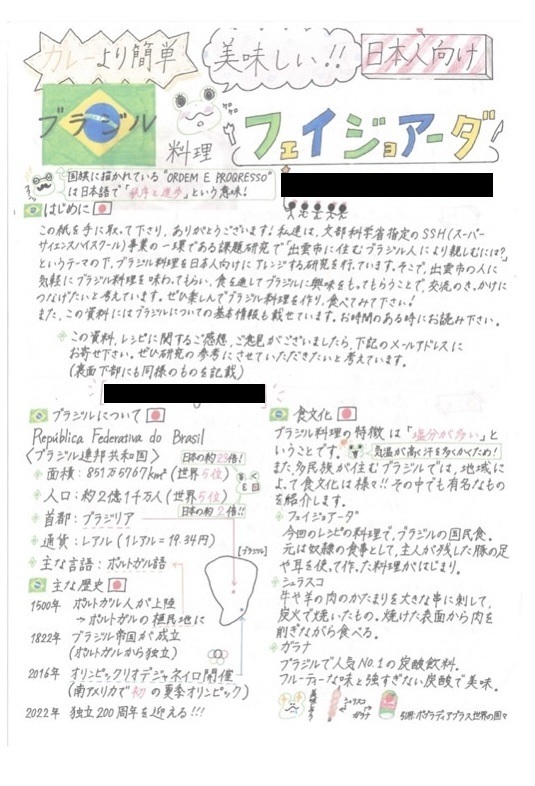 カレーより簡単
美味しい!!
日本人向け
ブラジル
料理
フェイジョアーダ
国旗に描かれている"ORDEM E PROGRESSO"
は日本語で「秩序と進歩」という意味!
はじめに
この紙を手に取って下さり、ありがとうございます!私達は、文部科学省指定のSSH(スーパー
サイエンスハイスクール)事業の一環である課題研究で「出雲市に住むブラジル人により親しむには?」
というテーマの下、ブラジル料理を日本人向けにアレンジする研究を行っています。そこで、出雲市の人に
気軽にブラジル料理を味わってもらい、食を通してブラジルに興味をもってもらうことで、交流のきっかけに
つなげたいと考えています。ぜひ楽しんでブラジル料理を作り、食べてみて下さい!
また、この資料にはブラジルについての基本情報も載せています。お時間のある時にお読み下さい。
この資料、レシピに関するご感想、ご意見がございましたら、下記のメールアドレスに
お寄せ下さい。ぜひ研究の参考にさせていただきたいと考えています。
(裏面下部にも同様のものを記載)
ブラジルについて
República Federativa do Brasil
〈ブラジル連邦共和国〉
日本の約23倍!
面積:851万5767km²(世界5位)
人口:約2億1千万人(世界5位)
日本の約2倍!!
首都:ブラジリア
通貨:レアル(1レアル=19.34円)
主な言語:ポルトガル語
[ブラジル]
主な歴史
1500年 ポルトガル人が上陸
→ポルトガルの植民地に
1822年 ブラジル帝国が成立
(ポルトガルから独立)
2016年 オリンピックリオデジャネイロ開催
(南アメリカで初の夏季オリンピック)
2022年 独立200周年を迎える!!!
食文化
ブラジル料理の特徴は「塩分が多い」と
いうことです。
気温が高く汗を多くかくため!
また、多民族が住むブラジルでは、地域に
よって食文化は様々!!その中でも有名なもの
を紹介します。
フェイジョアーダ
今回のレシピの料理で、ブラジルの国民食。
元は奴隷の食事として、主人が残した豚の足
や耳を使って作った料理がはじまり。
シュラスコ
牛や羊の肉のかたまりを大きな串に刺して、
炭火で焼いたもの。焼けた表面から肉を
削ぎながら食べる。
ガラナ
ブラジルで人気NO.1の炭酸飲料。
フルーティーな味と強すぎない炭酸で美味。
シュラスコ
ガラナ
引用:ポプラディアプラス世界の国々